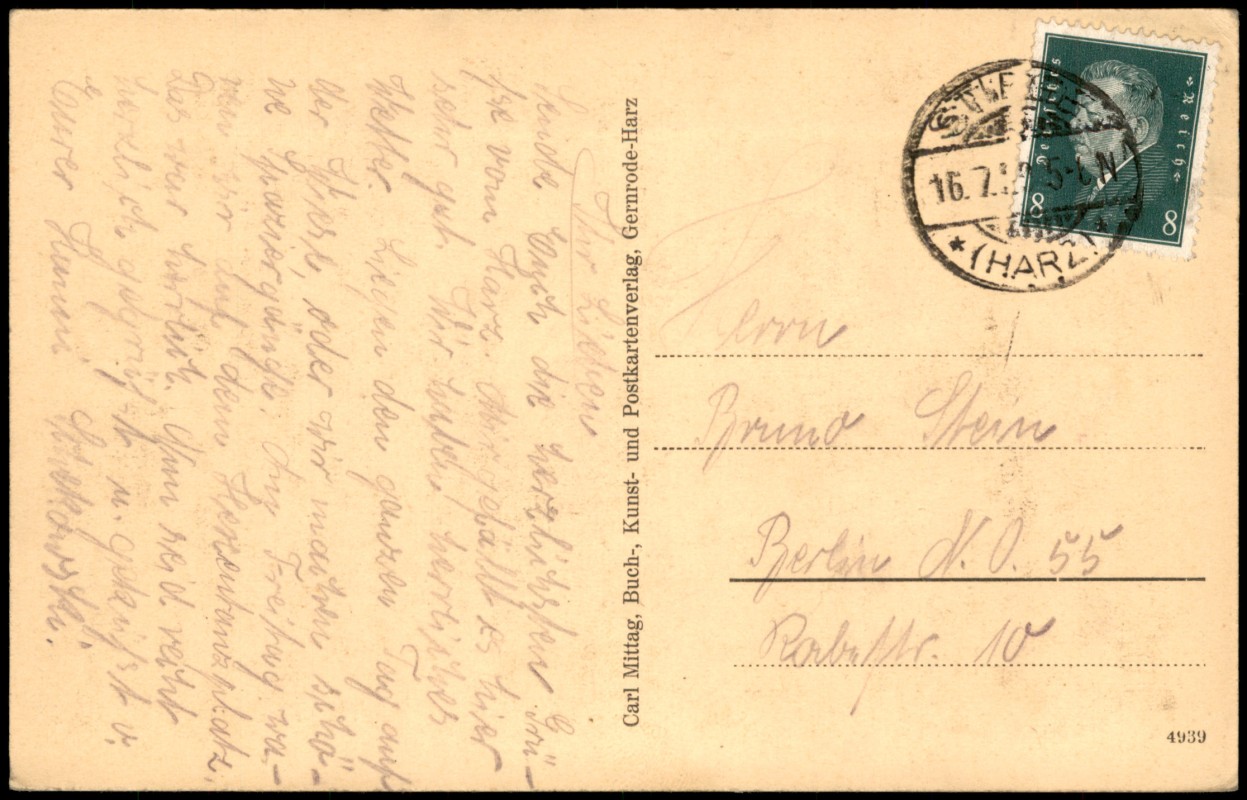 Ihr Lieben
sende Euch die herzlichsten Grü-
ße vom Harz. Mir gefällt es hier
sehr gut. Wir haben herrliches
Wetter. Liegen den ganzen Tag auf
der Wiese, oder wir machen schö-
ne Spaziergänge. Am Freitag wa-
ren wir auf dem Hexentanzplatz.
Das war herrlich. Nun seid recht
herzlich gegrüßt u. geküsst v.
Eurer
Carl Mittag, Buch-, Kunst- und Postkartenverlag, Gernrode-Harz
Deutsches Reich
8 8
16.7. 5-6 N
* (HARZ) *
Herrn
Bruno Stein
Berlin N.O. 55
Rabestr. 10
4939